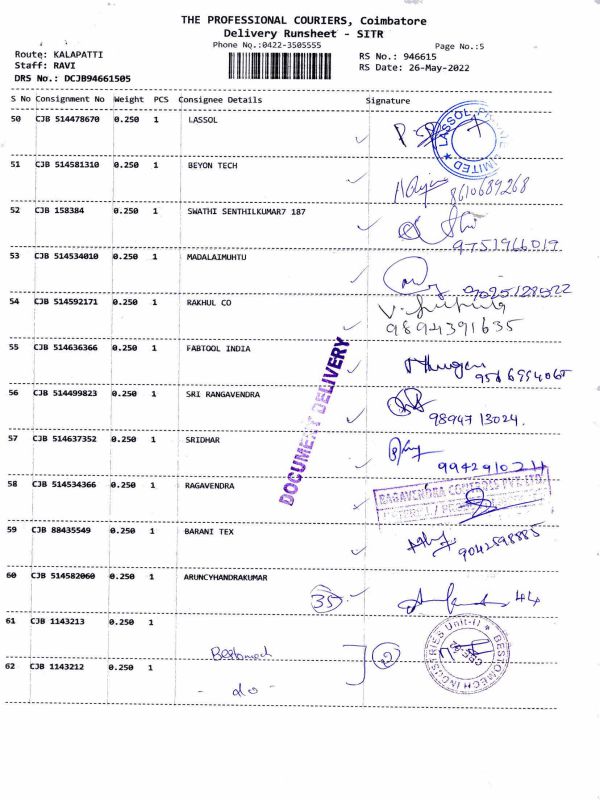 THE PROFESSIONAL COURIERS, Coimbatore
Delivery Runsheet - SITR
Phone No.:0422-3505555
Page No.:5
Route: KALAPATTI
RS No.: 946615
Staff: RAVI
RS Date: 26-May-2022
DRS No.: DCJB94661505
S No Consignment No Weight PCS Consignee Details Signature
50 CJB 514478670 0.250 1 LASSOL
LASSOL PRIVATE LIMITED
51 CJB 514581310 0.250 1 BEYON TECH
8610689268
52 CJB 158384 0.250 1 SWATHI SENTHILKUMAR7 187
9751966019
53 CJB 514534010 0.250 1 MADALAIMUHTU
9025128522
54 CJB 514592171 0.250 1 RAKHUL CO
9894391635
55 CJB 514636366 0.250 1 FABTOOL INDIA
DOCUMENT DELIVERY
56 CJB 514499823 0.250 1 SRI RANGAVENDRA
9894713024.
57 CJB 514637352 0.250 1 SRIDHAR
9942910211
58 CJB 514534366 0.250 1 RAGAVENDRA
RAGAVENDRA CONTROLS PVT LTD
59 CJB 88435549 0.250 1 BARANI TEX
9042898885
60 CJB 514582060 0.250 1 ARUNCYHANDRAKUMAR
35
44
61 CJB 1143213 0.250 1
Bestomech
2
BESTOMECH INDUSTRIES Unit-II
62 CJB 1143212 0.250 1
- do -